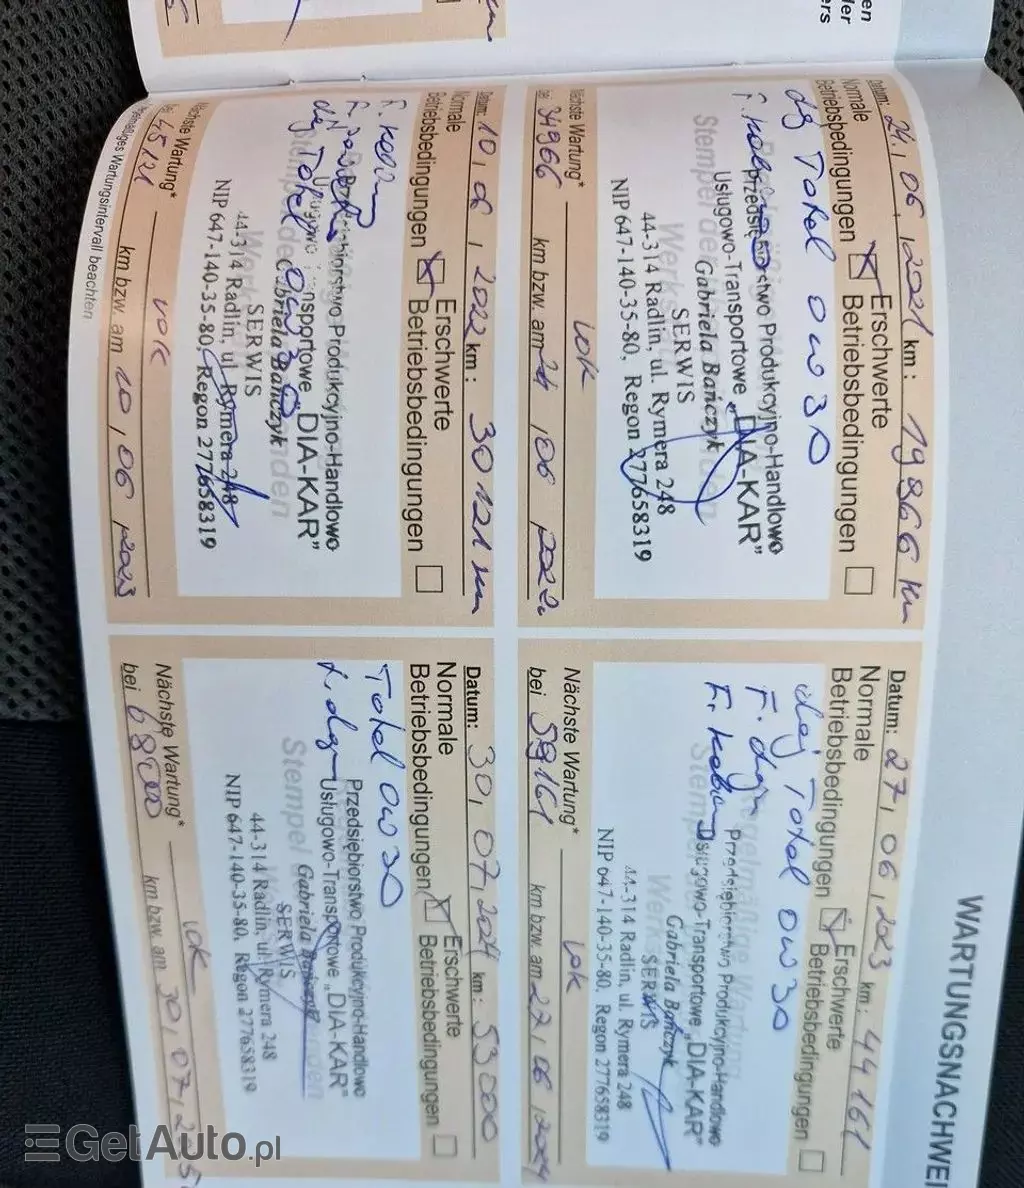 WARTUNGSNACHWEI
Datum: 24, 06, 2021 km: 19966 km
Normale
Betriebsbedingungen
Erschwerte
Betriebsbedingungen
olej Total 0w30
Przedsiębiorstwo Produkcyjno-Handlowo
Usługowo-Transportowe „DIA-KAR”
Gabriela Bańczyk
SERWIS
44-314 Radlin, ul. Rymera 248
NIP 647-140-35-80, Regon 277658319
Nächste Wartung*
bei 34966 km bzw. am 24, 06 2022
rok
Datum: 10, 06, 2022 km: 30121 km
Normale
Betriebsbedingungen
Erschwerte
Betriebsbedingungen
olej Total 0w30
Przedsiębiorstwo Produkcyjno-Handlowo
Usługowo-Transportowe „DIA-KAR”
Gabriela Bańczyk
SERWIS
44-314 Radlin, ul. Rymera 248
NIP 647-140-35-80, Regon 277658319
Nächste Wartung*
bei 45121 km bzw. am 10, 06, 2023
rok
Wartungsintervall beachten
Datum: 27, 06, 2023 km: 44161
Normale
Betriebsbedingungen
Erschwerte
Betriebsbedingungen
olej Total 0w30
Przedsiębiorstwo Produkcyjno-Handlowo
Usługowo-Transportowe „DIA-KAR”
Gabriela Bańczyk
SERWIS
44-314 Radlin, ul. Rymera 248
NIP 647-140-35-80, Regon 277658319
Nächste Wartung*
bei 59161 km bzw. am 27, 06, 2024
rok
Datum: 30, 07, 2024 km: 53000
Normale
Betriebsbedingungen
Erschwerte
Betriebsbedingungen
Total 0w30
Przedsiębiorstwo Produkcyjno-Handlowo
Usługowo-Transportowe „DIA-KAR”
Gabriela Bańczyk
SERWIS
44-314 Radlin, ul. Rymera 248
NIP 647-140-35-80, Regon 277658319
Nächste Wartung*
bei 68000 km bzw. am 30, 07, 2025
rok
GetAuto.pl